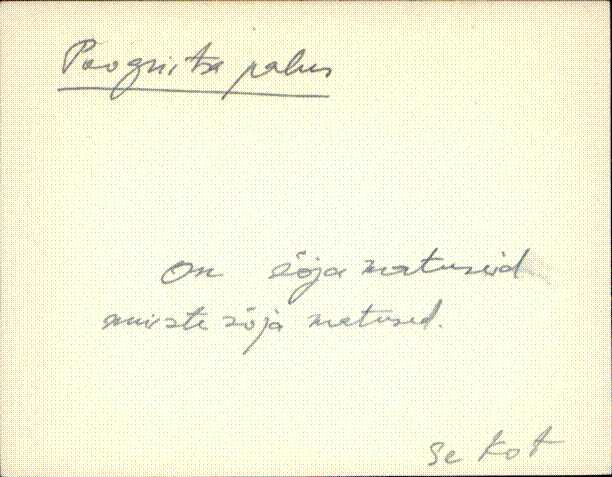 Poogniitsa palus
On sõja matuseid
muiste sõja matused.
Se Kot